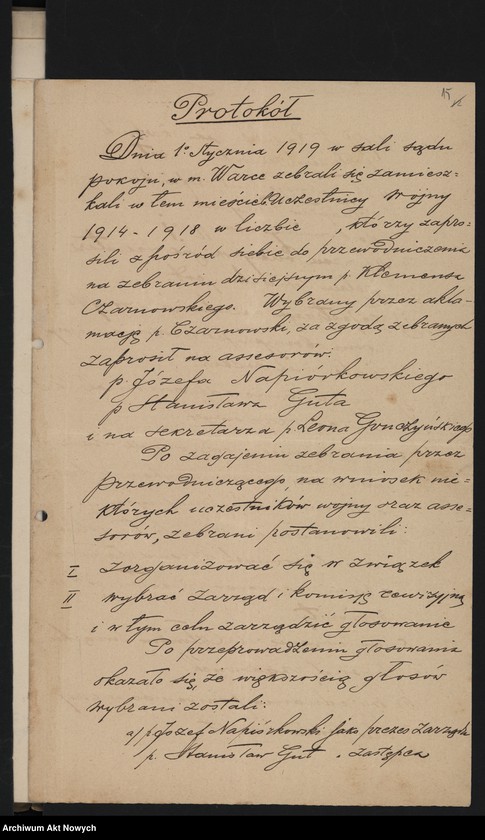 15
Protokół
Dnia 1º Stycznia 1919 w sali sądu
pokoju, w m. Warce zebrali się zamiesz-
kali w tem mieście Uczestnicy wojny
1914 - 1918 w liczbie , którzy zapro-
sili z pośród siebie do przewodniczenia
na zebraniu dzisiejszym p. Klemensa
Czarnowskiego. Wybrany przez akla-
macją p. Czarnowski, za zgodą zebranych
zaprosił na assesorów:
p. Józefa Napiórkowskiego
p Stanisława Guta
i na sekretarza p. Leona
Po zagajeniu zebrania przez
przewodniczącego, na wniosek nie-
których uczestników wojny oraz asse-
sorów, zebrani postanowili:
I zorganizować się w związek
II wybrać zarząd i komisję rewizyjną
i w tym celu zarządzić głosowanie
Po przeprowadzeniu głosowania
okazało się, że większością głosów
wybrani zostali:
a/ p. Józef Napiórkowski jako prezes zarządu
p. Stanisław Gut " zastępca
Archiwum Akt Nowych